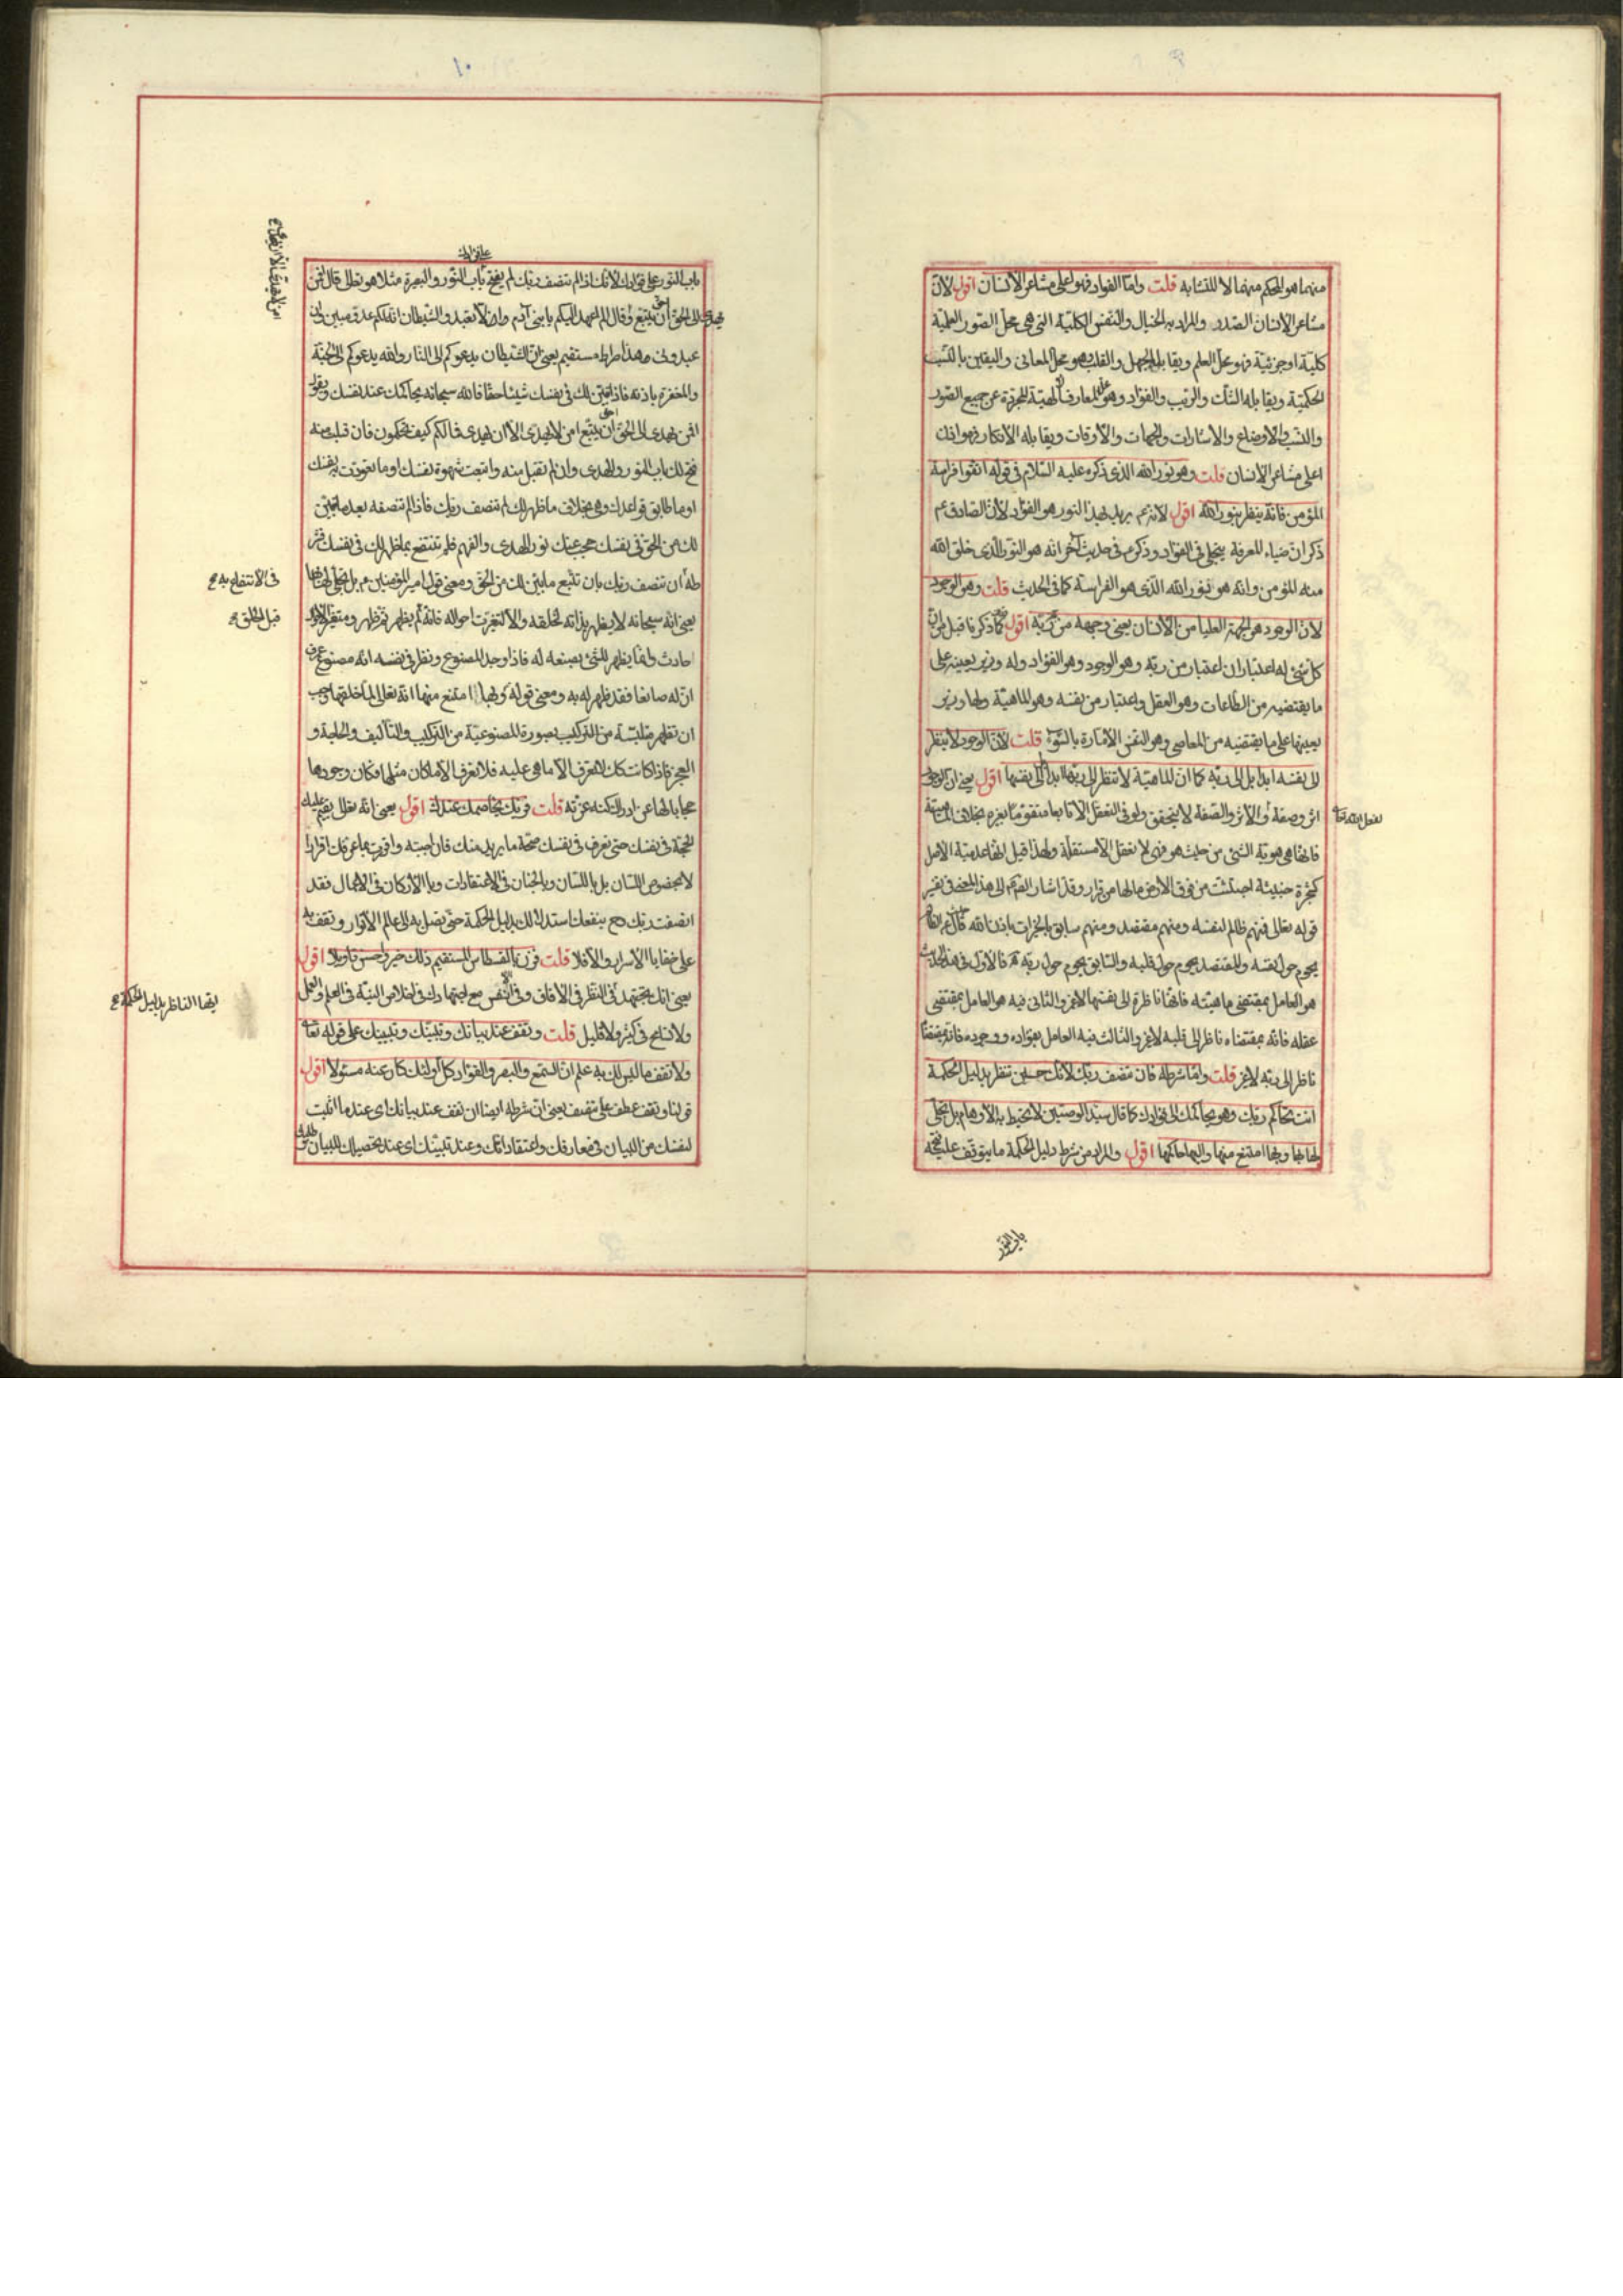 منهما هو المحكم منهما لا المتشابه قلت واما الفواد فهو اعلى مشاعر الانسان اقول لان
مشاعر الانسان الصدر والمراد به الخيال والنفس الكلية التى هى محل الصور العلمية
كلية او جزئية فهو محل العلم ويقابله الجهل والقلب وهو محل المعانى واليقين بالنسب
الحكمية ويقابله الشك والريب والفؤاد وهو محل المعارف الالهية المجردة عن جميع الصور
والنسب والاوضاع والاشارات والجهات والاوقات ويقابله الانكار فهو اذن
اعلى مشاعر الانسان قلت وهو نور الله الذى ذكره عليه السلام فى قوله اتقوا فراسة
المؤمن فانه ينظر بنور الله اقول لانه ع يريد بهذا النور هو الفؤاد لان الصادق ع
ذكر ان ضياء المعرفة ينجلى فى الفؤاد وذكر ع فى حديث آخر انه هو النور الذى خلق الله
منه المؤمن وانه هو نور الله الذى هو الفراسة كما فى الحديث قلت وهو الوجود
لان الوجود هو الجهة العليا من الانسان يعنى وجهه من ربه اقول كما ذكرنا قبل من ان
كل شئ له اعتباران اعتبار من ربه وهو الوجود وهو الفؤاد وله وزير يعينه على
ما يقتضيه من الطاعات وهو العقل واعتبار من نفسه وهو الماهية ولها وزير
يعينها على ما يقتضيه من المعاصى وهو النفس الامارة بالسوء قلت لان الوجود لا ينظر
الى نفسه ابدا بل الى ربه كما ان الماهية لا تنظر الى ربها ابدا بل الى نفسها اقول يعنى ان الوجود
اثر وصفة والاثر والصفة لا يتحقق ولو فى التعقل الا تابعا متقوما بغيره بخلاف الماهية
لفعل الله تعالى
فانها هى هوية الشئ من حيث هو فهى لا تعقل الا مستقلة ولهذا قيل انها عدمية الاصل
كشجرة خبيثة اجتثت من فوق الارض مالها من قرار وقد اشار القوم الى هذا المعنى فى تفسير
قوله تعالى فمنهم ظالم لنفسه ومنهم مقتصد ومنهم سابق بالخيرات باذن الله قال الظالم
يحوم حول نفسه والمقتصد يحوم حول قلبه والسابق يحوم حول ربه فالاول فى هذا الحديث
هو العامل بمقتضى ماهيته فانها ناظرة الى نفسها لا غير والثانى فيه هو العامل بمقتضى
عقله فانه بمقتضاه ناظر الى قلبه لا غير والثالث فيه العامل بفؤاده ووجوده فانه بمقتضاه
ناظر الى ربه لا غير قلت واما شرطه فان تنصف ربك لانك حين تنظر بدليل الحكمة
انت تحاكم ربك وهو يحاكمك الى فؤادك كما قال سيد الوصيين لا تحيط به الاوهام بل تجلى
لها بها وبها امتنع منها واليها حاكمها اقول والمراد من شرط دليل الحكمة ما يتوقف عليه فتح
باب النور
١٠
باب النور على فؤادك لانك اذا لم تنصف ربك لم يفتح باب النور والبصيرة مثلا هو تعالى قال افمن
يهدى الى الحق احق ان يتبع وقال الم اعهد اليكم يا بنى آدم ان لا تعبدوا الشيطان انه لكم عدو مبين وان
عبدونى هذا صراط مستقيم يعنى ان الشيطان يدعوكم الى النار والله يدعوكم الى الجنة
والمغفرة باذنه فاذا تبين لك فى نفسك شيئا حقا فالله سبحانه يحاكمك عند نفسك ويقول
افمن يهدى الى الحق احق ان يتبع امن لا يهدى الا ان يهدى فما لكم كيف تحكمون فان قبلت منه
فتح لك باب النور والهدى وان لم تقبل منه واتبعت شهوة نفسك او ما تعودت به نفسك
او ما طابق قواعدك وهى بخلاف ما ظهر لك لم تنصف ربك فاذا لم تنصفه بعد ما تبين
لك من الحق فى نفسك حجب عنك نور الهدى والفهم فلم تنتفع بما ظهر لك فى نفسك فشر
طه ان تنصف ربك بان تتبع ما تبين لك من الحق ومعنى قول امير المؤمنين ع بل تجلى لها بها
فى الانتفاع به
يعنى انه سبحانه لا يظهر بذاته لخلقه والا لتغيرت احواله فانه لم يظهر ثم ظهر ومتغير الاحوال
قبل الخلق
حادث وانما يظهر للشئ بصنعه له فاذا وجد المصنوع ونظر فى نفسه انه مصنوع عرف
ان له صانعا فقد ظهر له به ومعنى قوله وبها امتنع منها انه تعالى لما خلقها وجب
ان تظهر متلبسة من التركيب بصورة المصنوعية من التركيب والتاليف والحاجة و
العجز فاذا كانت كذلك لا تعرف الا ما هى عليه فلا تعرف الا ما كان مثلها فكان وجودها
حجابا لها عن ادراك كنه عزته قلت فربك يخاصمك عندك اقول يعنى انه تعالى يقيم عليك
الحجة فى نفسك حتى تعرف فى نفسك صحة ما يريد منك فان اجبته واقررت بما عرفك اقرارا
لا بخصوص اللسان بل باللسان وبالجنان فى الاعتقادات وبالاركان فى الاعمال فقد
انصفت ربك وح ينفعك استدلالك بدليل الحكمة حتى تصل به الى عالم الانوار وتقف به
على خفايا الاسرار والا فلا قلت فزن بالقسطاس المستقيم ذلك خير واحسن تاويلا اقول
يعنى انك تجتهد فى النظر فى الافاق وفى الانفس مع اجتهادك فى اخلاص النية فى العلم والعمل
ايضا الناظر بدليل الحكمة
ولا تسامح فى كثير ولا قليل قلت وتقف عند بيانك وتبينك وتبيينك على قوله تعالى
ولا تقف ما ليس لك به علم ان السمع والبصر والفؤاد كل اولئك كان عنه مسئولا اقول
قولنا وتقف عطف على تنصف يعنى ان شرطه ايضا ان تقف عند بيانك اى عند ما اثبت
لنفسك من البيان فى معارفك واعتقاداتك وعند تبينك اى عند تحصيلك للبيان